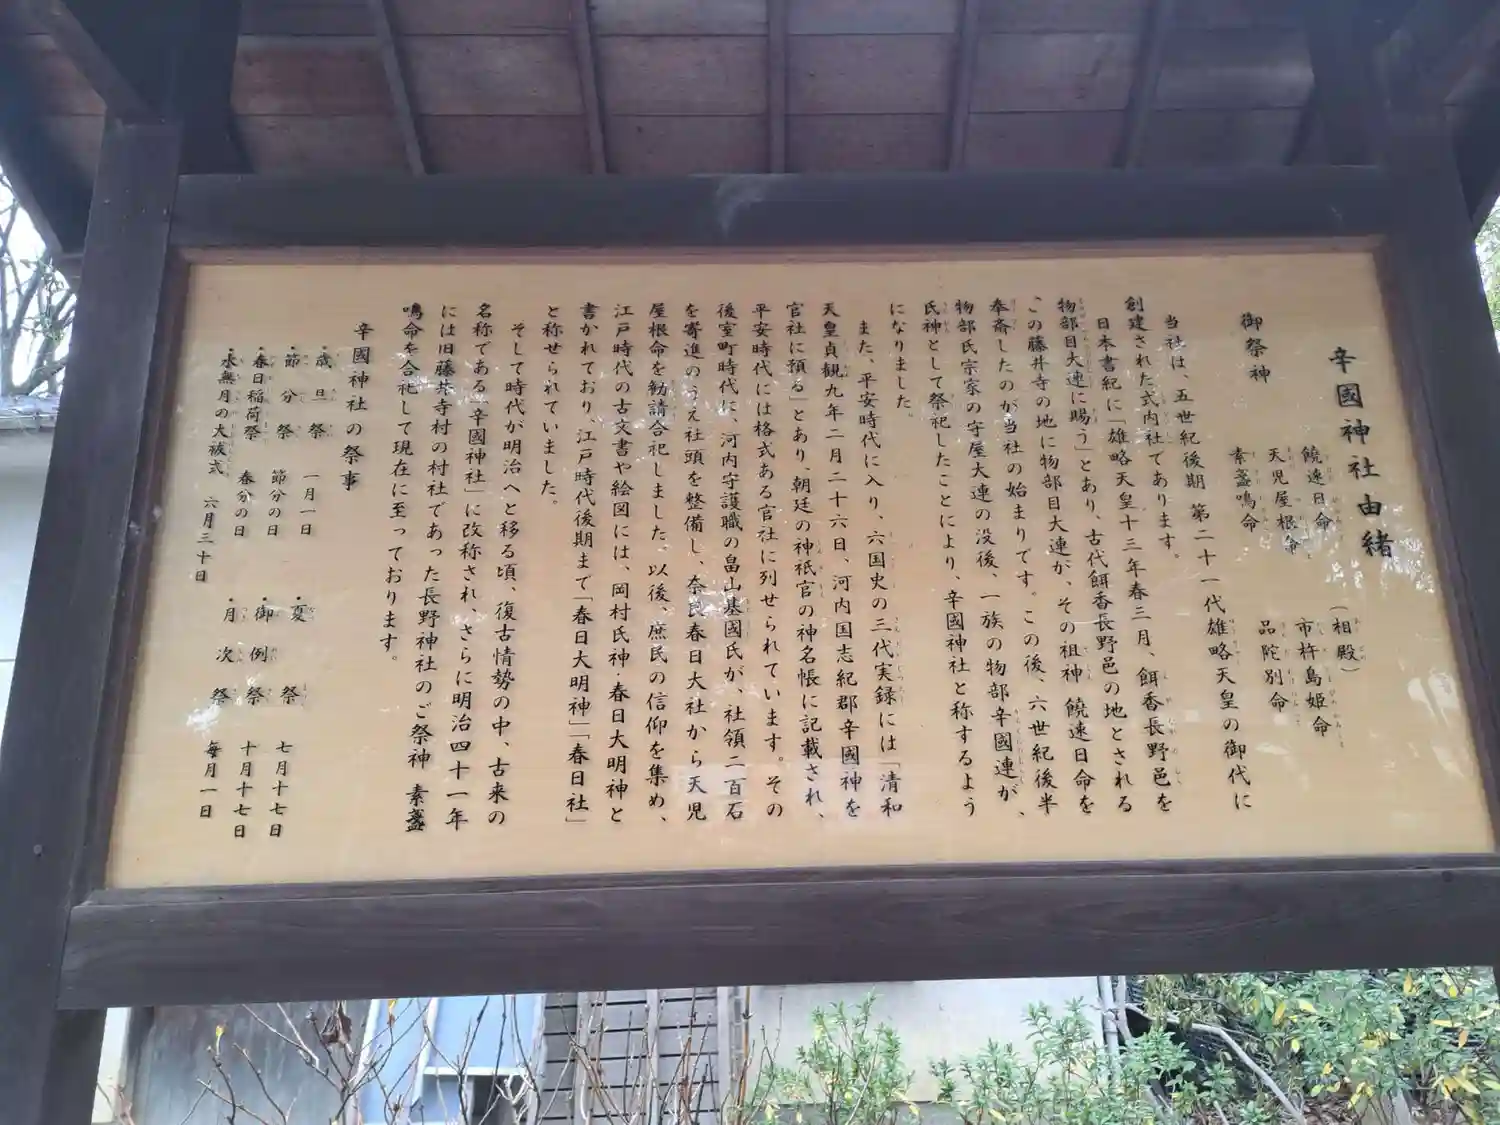 辛國神社由緒
御祭神
饒速日命
天児屋根命
素盞鳴命
(相殿)
市杵島姫命
品陀別命
当社は、五世紀後期 第二十一代雄略天皇の御代に
創建された式内社であります。
日本書紀に「雄略天皇十三年春三月、餌香長野邑を
物部目大連に賜う」とあり、古代餌香長野邑の地とされる
この藤井寺の地に物部目大連が、その祖神 饒速日命を
奉斎したのが当社の始まりです。この後、六世紀後半
物部氏宗家の守屋大連の没後、一族の物部辛國連が、
氏神として祭祀したことにより、辛國神社と称するよう
になりました。
また、平安時代に入り、六国史の三代実録には「清和
天皇貞観九年二月二十六日、河内国志紀郡辛國神を
官社に預る」とあり、朝廷の神祇官の神名帳に記載され、
平安時代には格式ある官社に列せられています。その
後室町時代に、河内守護職の畠山基國氏が、社領二百石
を寄進のうえ社頭を整備し、奈良春日大社から天児
屋根命を勧請合祀しました。以後、庶民の信仰を集め、
江戸時代の古文書や絵図には、岡村氏神・春日大明神と
書かれており、江戸時代後期まで「春日大明神」「春日社」
と称せられていました。
そして時代が明治へと移る頃、復古情勢の中、古来の
名称である「辛國神社」に改称され、さらに明治四十一年
には旧藤井寺村の村社であった長野神社のご祭神 素盞
鳴命を合祀して現在に至っております。
辛國神社の祭事
・歳旦祭 一月一日
・節分祭 節分の日
・春日稲荷祭 春分の日
・水無月の大祓式 六月三十日
・夏祭 七月十七日
・御例祭 十月十七日
・月次祭 毎月一日